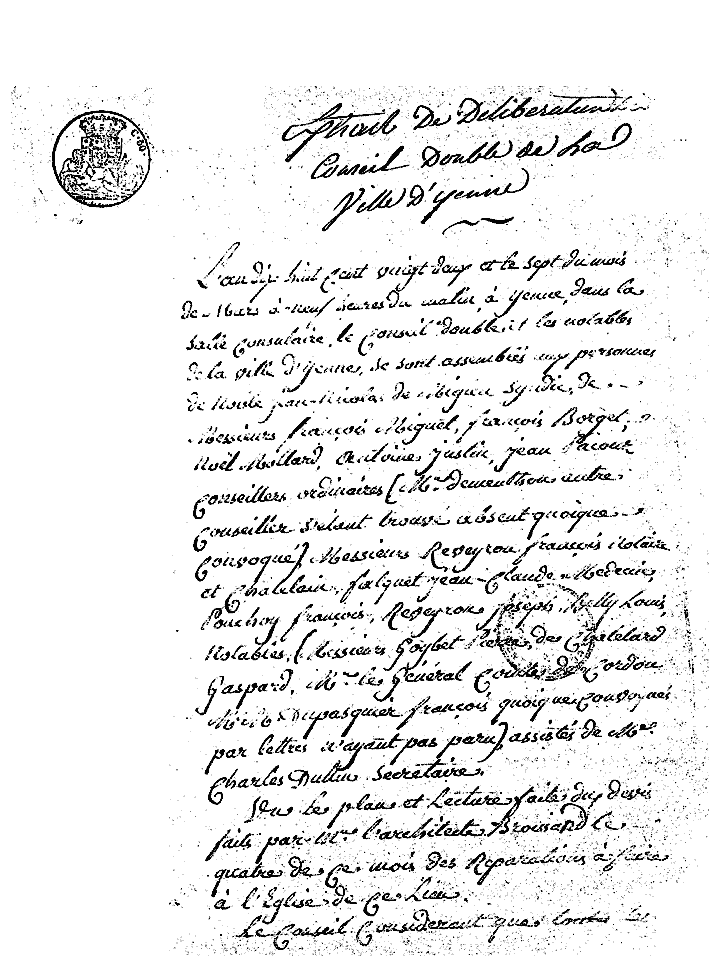 Extrait De Deliberation du
Conseil Double de La
Ville D'yenne
C. 60
L'an dix huit Cent vingt deux et le sept du mois
de Mars à neuf heures du matin, à yenne, dans la
salle Consulaire, le Conseil double, et les notables
de la ville d'yenne, se sont assemblés aux personnes
de Noble jean-Nicolas de Migieu Syndic, de
Messieurs françois Miguet, françois Borget,
Noël Mollard, Antoine justin, jean Pacoux
Conseillers ordinaires (Mr. dementhon autre
Conseiller s'étant trouvé absent quoique
Convoqué), Messieurs Reveyron françois Notaire
et Chatelain, falquet jean-Claude Medecin,
Pouchoy françois, Reveyron joseph, Billy Louis,
Notables, (Messieurs Goybet Pierre, de Chatelard
Gaspard, Mr. le Général Comte de Cordon
Dupasquier françois quoique Convoqués
par lettres n'ayant pas paru), assistés de Me.
Charles Dullin Secretaire.
Vu le plan et Lecture faite du devis
faits par Mr. l'architecte Broisand le
quatre de Ce mois des Réparations à faire
à l'Eglise de Ce Lieu.
Le Conseil Considerant que toutes les